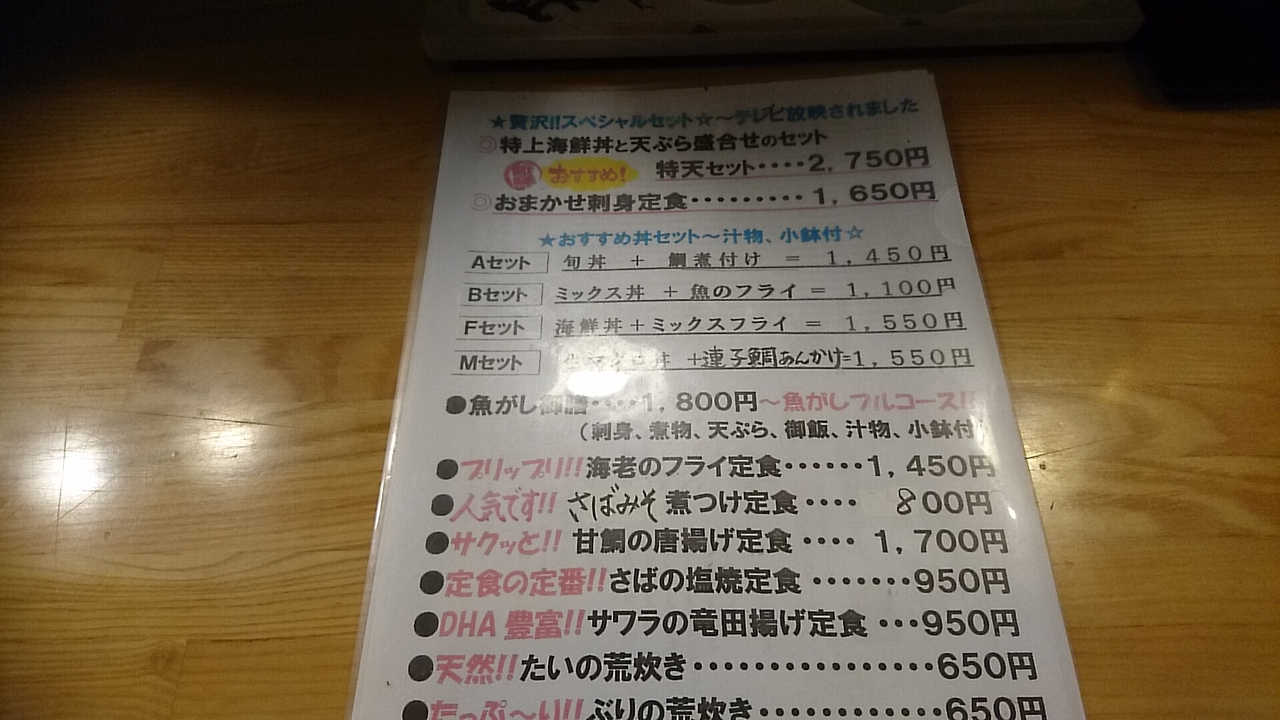 ★贅沢!!スペシャルセット☆～テレビ放映されました
◎特上海鮮丼と天ぷら盛合せのセット
おすすめ! 特天セット････2,750円
◎おまかせ刺身定食･････････1,650円
★おすすめ丼セット～汁物、小鉢付☆
Aセット 旬丼 + 鯛煮付け = 1,450円
Bセット ミックス丼 + 魚のフライ = 1,100円
Fセット 海鮮丼+ミックスフライ = 1,550円
Mセット 丼 +連子鯛あんかけ=1,550円
●魚がし御膳････1,800円～魚がしフルコース!!
(刺身、煮物、天ぷら、御飯、汁物、小鉢付)
●プリップリ!!海老のフライ定食･･････1,450円
●人気です!! さばみそ煮つけ定食････ 800円
●サクッと!! 甘鯛の唐揚げ定食････ 1,700円
●定食の定番!!さばの塩焼定食･･･････950円
●DHA豊富!!サワラの竜田揚げ定食･･･950円
●天然!!たいの荒炊き････････････････650円
●たっぷ～り!!ぶりの荒炊き････････････650円